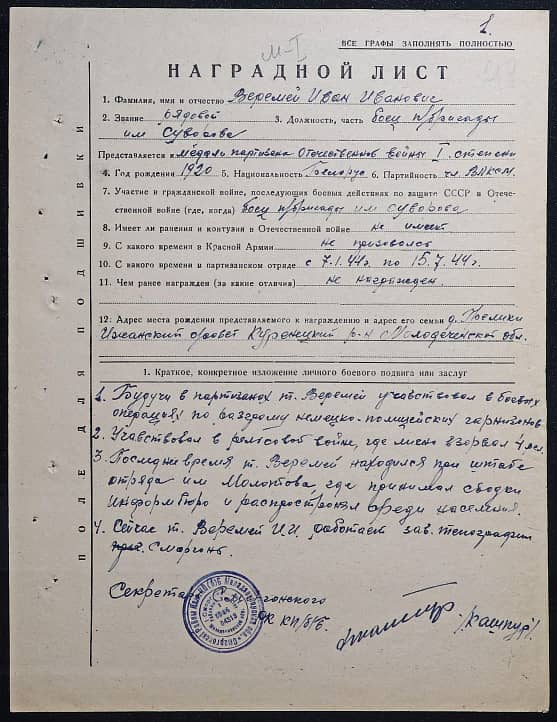 1.
М-I
ВСЕ ГРАФЫ ЗАПОЛНЯТЬ ПОЛНОСТЬЮ
НАГРАДНОЙ ЛИСТ
1. Фамилия, имя и отчество Веремей Иван Иванович
2. Звание рядовой 3. Должность, часть боец п/бригады
им Суворова
Представляется к медали партизана Отечественной войны I степени
4. Год рождения 1920 5. Национальность Белорус 6. Партийность чл. ВЛКСМ
7. Участие в гражданской войне, последующих боевых действиях по защите СССР в Отече-
ственной войне (где, когда) боец п/бригады им Суворова
8. Имеет ли ранения и контузии в Отечественной войне не имеет
9. С какого времени в Красной Армии не призовался
10. С какого времени в партизанском отряде с 7.1.44г. по 15.7.44г.
11. Чем ранее награжден (за какие отличия) не награжден
12. Адрес места рождения представляемого к награждению и адрес его семьи д.
Ижанский с/совет Куренецкий р-н Молодеченской обл.
1. Краткое, конкретное изложение личного боевого подвига или заслуг
1. Будучи в партизанах т. Веремей учавствовал в боевых
операциях по разгрому немецко-полицейских гарнизонов.
2. Учавствовал в рельсовой войне, где лично взорвал 4
3. Последне время т. Веремей находился при штабе
отряда им Молотова, где принимал сводки
Информбюро и распространял среди населения.
4. Сейчас т. Веремей И.И. работает зав. типографии
Сморгонь.
Секретарь
РК КП/б/Б.
/Кашпур/
ПОЛЕ ДЛЯ ПОДШИВКИ